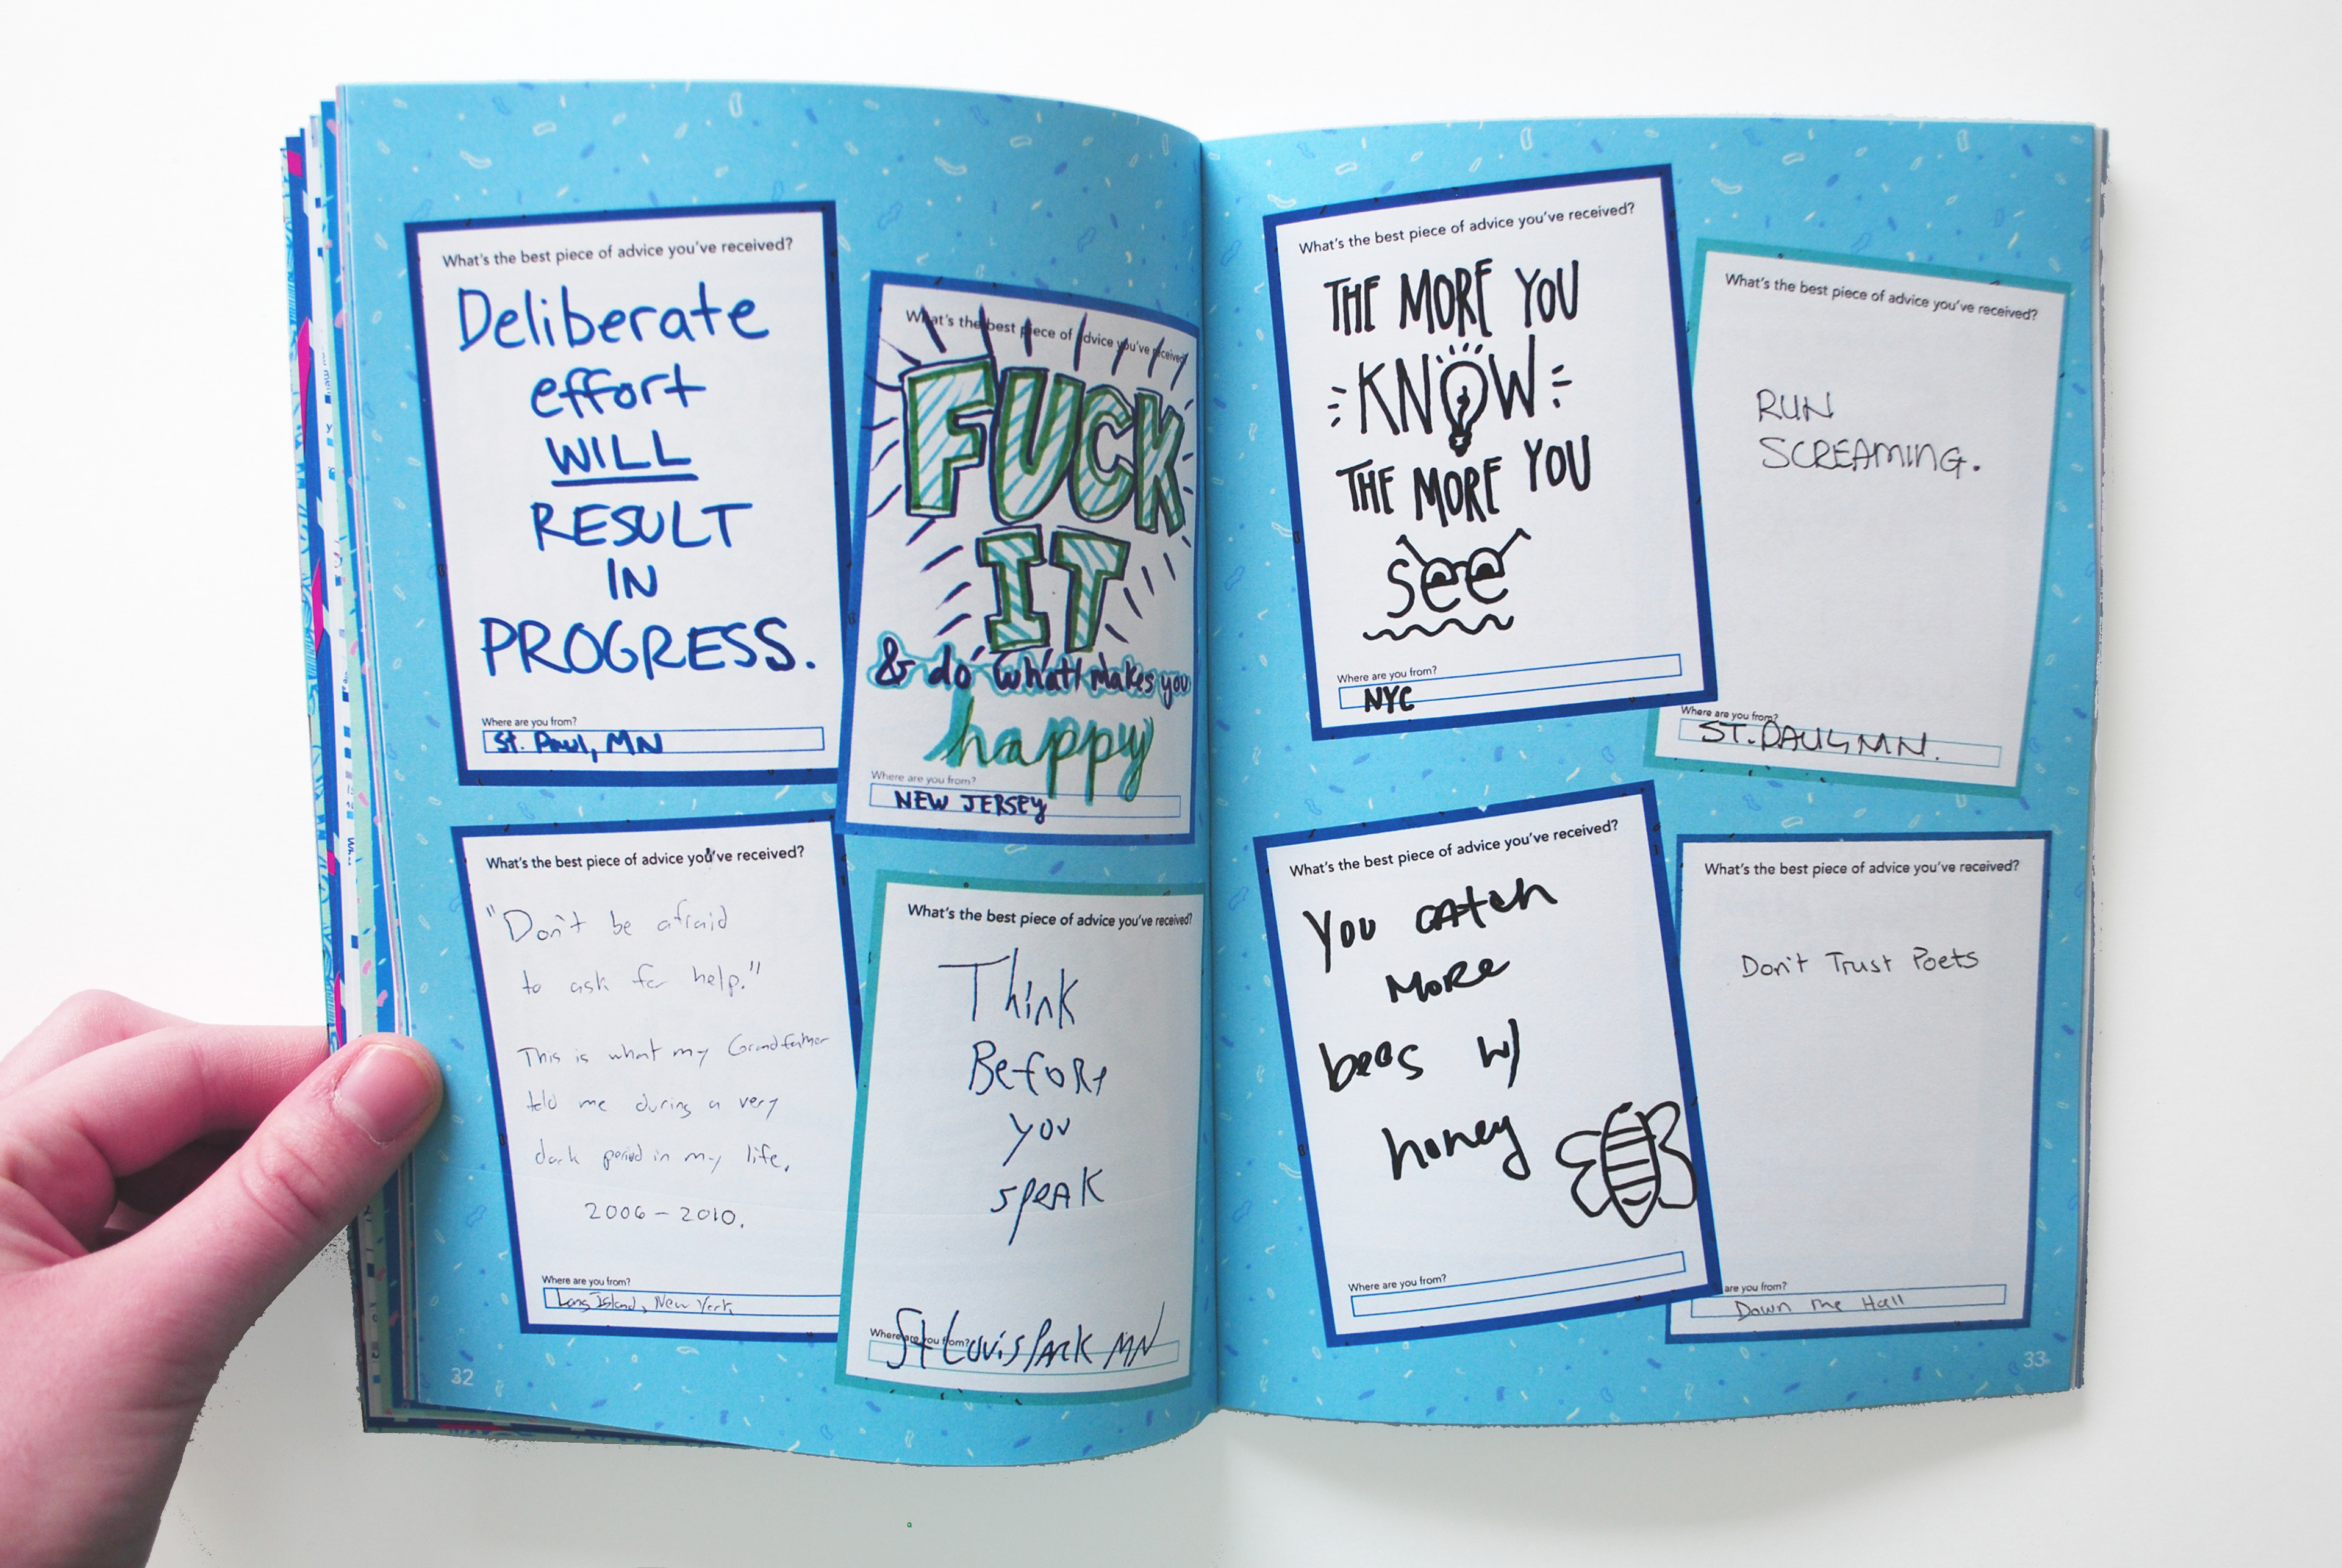 What's the best piece of advice you've received?
Deliberate
effort
WILL
RESULT
IN
PROGRESS.
Where are you from?
St. Paul, MN
What's the best piece of advice you've received
FUCK
IT
& do what makes you
happy
Where are you from?
NEW JERSEY
What's the best piece of advice you've received?
"Don't be afraid
to ask for help."
This is what my Grandfather
told me during a very
dark period in my life.
2006 - 2010.
Where are you from?
Long Island, New York
What's the best piece of advice you've received?
Think
Before
you
speak
Where are you from?
St Louis Park MN
32
What's the best piece of advice you've received?
THE MORE YOU
KNOW
THE MORE YOU
see
Where are you from?
NYC
What's the best piece of advice you've received?
RUN
SCREAMING.
Where are you from?
ST. PAUL, MN.
What's the best piece of advice you've received?
You catch
More
bees w/
honey
Where are you from?
What's the best piece of advice you've received?
Don't Trust Poets
are you from?
Down the Hall
33